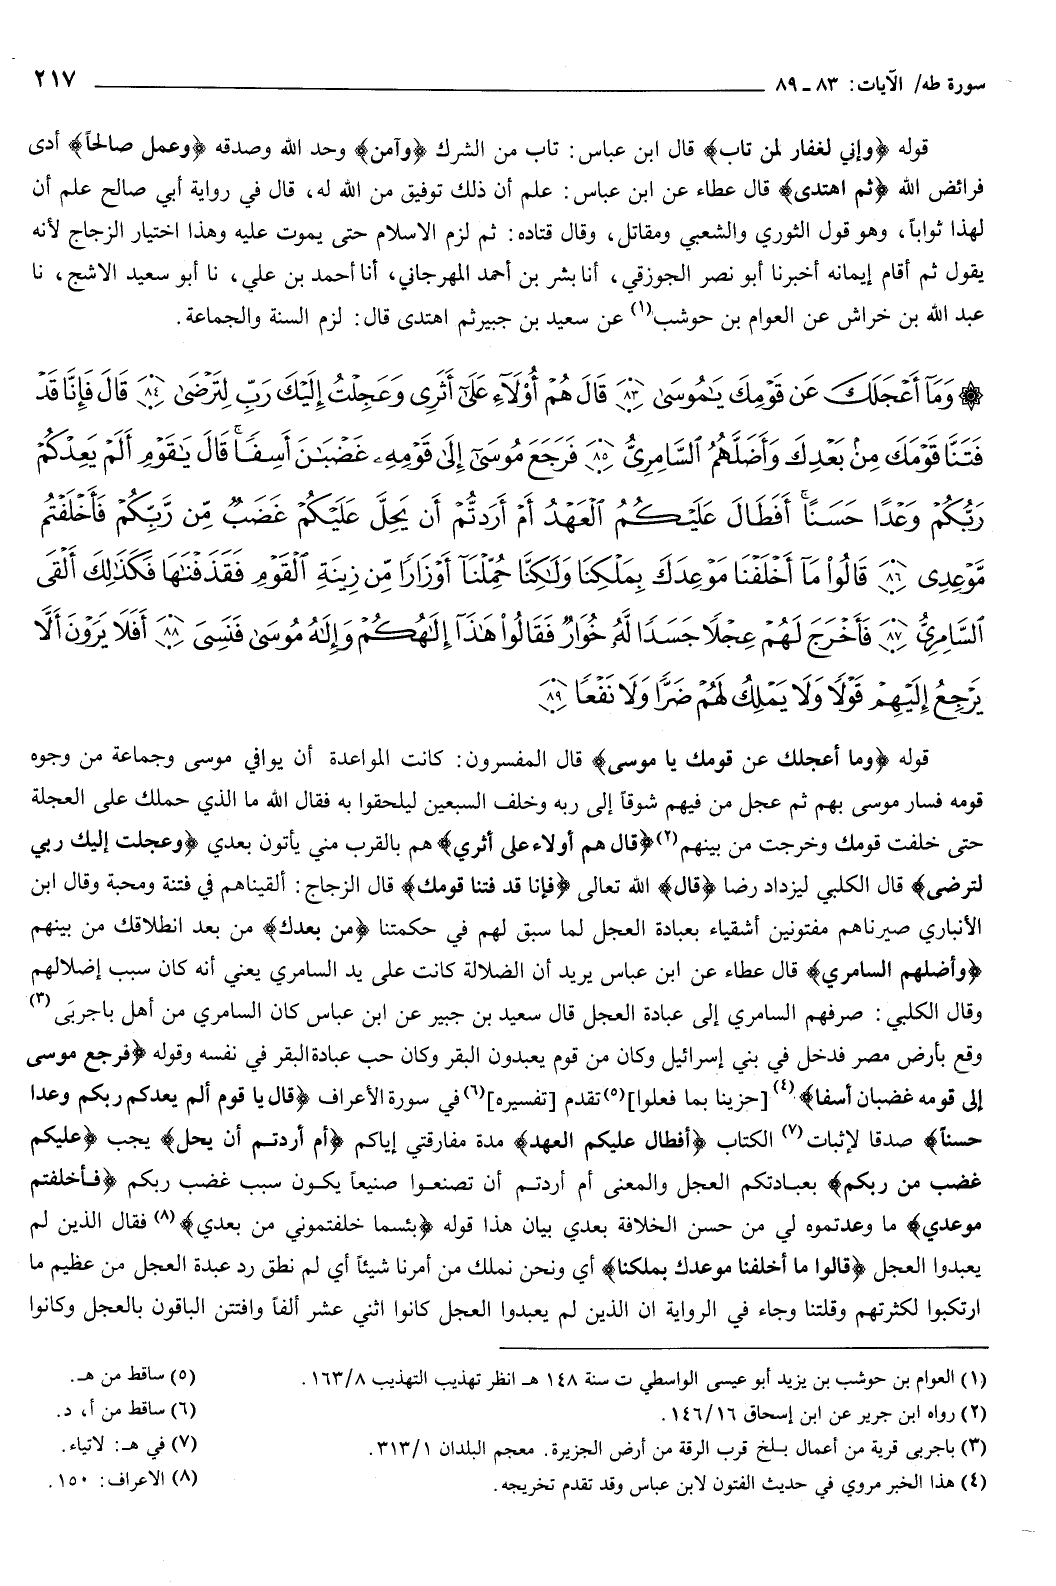 سورة طه/ الآيات: ٨٣ ـ ٨٩ ٢١٧
قوله ﴿وإني لغفار لمن تاب﴾ قال ابن عباس: تاب من الشرك ﴿وآمن﴾ وحد الله وصدقه ﴿وعمل صالحاً﴾ أدى
فرائض الله ﴿ثم اهتدى﴾ قال عطاء عن ابن عباس: علم أن ذلك توفيق من الله له، قال في رواية أبي صالح علم أن
لهذا ثواباً، وهو قول الثوري والشعبي ومقاتل، وقال قتاده: ثم لزم الاسلام حتى يموت عليه وهذا اختيار الزجاج لأنه
يقول ثم أقام إيمانه أخبرنا أبو نصر الجوزقي، أنا بشر بن أحمد المهرجاني، أنا أحمد بن علي، نا أبو سعيد الاشج، نا
عبد الله بن خراش عن العوام بن حوشب(١) عن سعيد بن جبيرثم اهتدى قال: لزم السنة والجماعة.
۞ وَمَآ أَعْجَلَكَ عَن قَوْمِكَ يَٰمُوسَىٰ ٨٣ قَالَ هُمْ أُوْلَآءِ عَلَىٰٓ أَثَرِى وَعَجِلْتُ إِلَيْكَ رَبِّ لِتَرْضَىٰ ٨٤ قَالَ فَإِنَّا قَدْ
فَتَنَّا قَوْمَكَ مِنۢ بَعْدِكَ وَأَضَلَّهُمُ ٱلسَّامِرِىُّ ٨٥ فَرَجَعَ مُوسَىٰٓ إِلَىٰ قَوْمِهِۦ غَضْبَٰنَ أَسِفًا ۚ قَالَ يَٰقَوْمِ أَلَمْ يَعِدْكُمْ
رَبُّكُمْ وَعْدًا حَسَنًا ۚ أَفَطَالَ عَلَيْكُمُ ٱلْعَهْدُ أَمْ أَرَدتُّمْ أَن يَحِلَّ عَلَيْكُمْ غَضَبٌ مِّن رَّبِّكُمْ فَأَخْلَفْتُم
مَّوْعِدِى ٨٦ قَالُوا۟ مَآ أَخْلَفْنَا مَوْعِدَكَ بِمَلْكِنَا وَلَٰكِنَّا حُمِّلْنَآ أَوْزَارًا مِّن زِينَةِ ٱلْقَوْمِ فَقَذَفْنَٰهَا فَكَذَٰلِكَ أَلْقَى
ٱلسَّامِرِىُّ ٨٧ فَأَخْرَجَ لَهُمْ عِجْلًا جَسَدًا لَّهُۥ خُوَارٌ فَقَالُوا۟ هَٰذَآ إِلَٰهُكُمْ وَإِلَٰهُ مُوسَىٰ فَنَسِىَ ٨٨ أَفَلَا يَرَوْنَ أَلَّا
يَرْجِعُ إِلَيْهِمْ قَوْلًا وَلَا يَمْلِكُ لَهُمْ ضَرًّا وَلَا نَفْعًا ٨٩
قوله ﴿وما أعجلك عن قومك يا موسى﴾ قال المفسرون: كانت المواعدة أن يوافي موسى وجماعة من وجوه
قومه فسار موسى بهم ثم عجل من فيهم شوقاً إلى ربه وخلف السبعين ليلحقوا به فقال الله ما الذي حملك على العجلة
حتى خلفت قومك وخرجت من بينهم(٢) ﴿قال هم أولاء على أثري﴾ هم بالقرب مني يأتون بعدي ﴿وعجلت إليك ربي
لترضى﴾ قال الكلبي ليزداد رضا ﴿قال﴾ الله تعالى ﴿فإنا قد فتنا قومك﴾ قال الزجاج: ألقيناهم في فتنة ومحبة وقال ابن
الأنباري صيرناهم مفتونين أشقياء بعبادة العجل لما سبق لهم في حكمتنا ﴿من بعدك﴾ من بعد انطلاقك من بينهم
﴿وأضلهم السامري﴾ قال عطاء عن ابن عباس يريد أن الضلالة كانت على يد السامري يعني أنه كان سبب إضلالهم
وقال الكلبي: صرفهم السامري إلى عبادة العجل قال سعيد بن جبير عن ابن عباس كان السامري من أهل باجربَى(٣)
وقع بأرض مصر فدخل في بني إسرائيل وكان من قوم يعبدون البقر وكان حب عبادة البقر في نفسه وقوله ﴿فرجع موسى
إلى قومه غضبان أسفا﴾(٤) [حزينا بما فعلوا](٥) تقدم [تفسيره](٦) في سورة الأعراف ﴿قال يا قوم ألم يعدكم ربكم وعدا
حسناً﴾ صدقا لإثبات(٧) الكتاب ﴿أفطال عليكم العهد﴾ مدة مفارقتي إياكم ﴿أم أردتم أن يحل﴾ يجب ﴿عليكم
غضب من ربكم﴾ بعبادتكم العجل والمعنى أم أردتم أن تصنعوا صنيعاً يكون سبب غضب ربكم ﴿فأخلفتم
موعدي﴾ ما وعدتموه لي من حسن الخلافة بعدي بيان هذا قوله ﴿بئسما خلفتموني من بعدي﴾(٨) فقال الذين لم
يعبدوا العجل ﴿قالوا ما أخلفنا موعدك بملكنا﴾ أي ونحن نملك من أمرنا شيئاً أي لم نطق رد عبدة العجل من عظيم ما
ارتكبوا لكثرتهم وقلتنا وجاء في الرواية ان الذين لم يعبدوا العجل كانوا اثني عشر ألفاً وافتتن الباقون بالعجل وكانوا
(١) العوام بن حوشب بن يزيد أبو عيسى الواسطي ت سنة ١٤٨ هـ انظر تهذيب التهذيب ١٦٣/٨.
(٢) رواه ابن جرير عن ابن إسحاق ١٤٦/١٦.
(٣) باجربى قرية من أعمال بلخ قرب الرقة من أرض الجزيرة. معجم البلدان ٣١٣/١.
(٤) هذا الخبر مروي في حديث الفتون لابن عباس وقد تقدم تخريجه.
(٥) ساقط من هـ.
(٦) ساقط من أ، د.
(٧) في هـ: لاتياء.
(٨) الاعراف: ١٥٠.